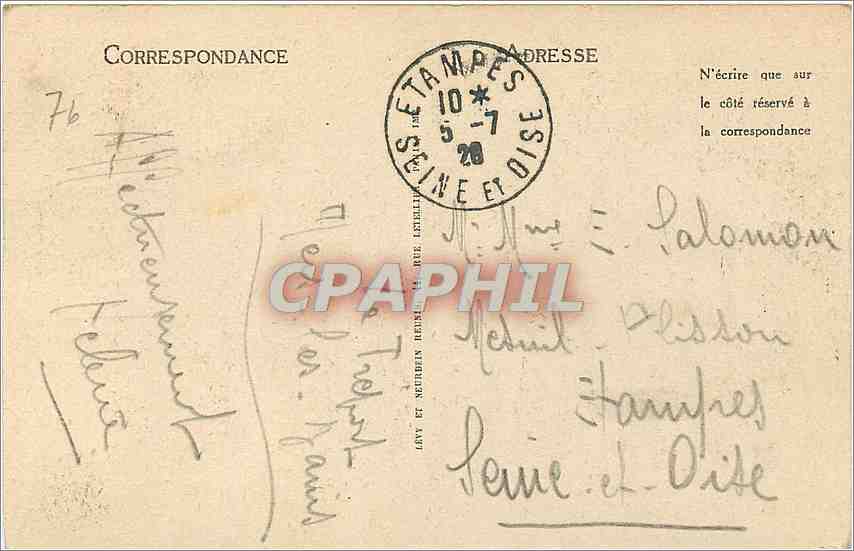 CORRESPONDANCE
ADRESSE
N'écrire que sur
le côté réservé à
la correspondance
ETAMPES
10 *
5 -7
28
SEINE ET OISE
76
Affectueusement
Le Tréport
Mers-les-Bains
LÉVY ET NEURDEIN RÉUNIS, 44, RUE LETELLIER, PARIS IMP.
CPAPHIL
Mr. Mme E. Salomon
Mesnil
Etampes
Seine-et-Oise